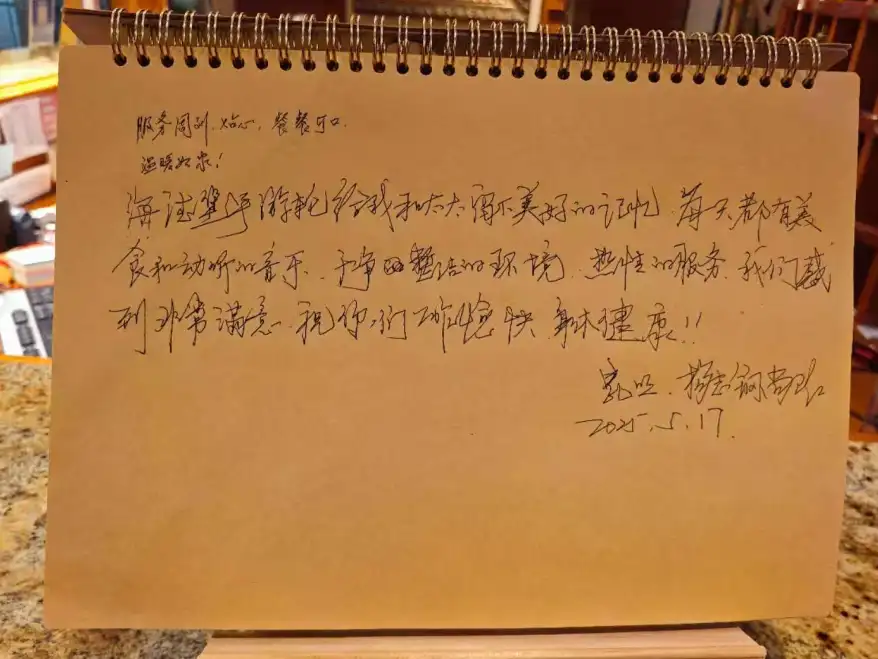 服务周到,贴心,餐餐可口.
温暖如家!
海达 游轮给我和太太留下美好的记忆,每天都有美
食和动听的音乐、干净的整洁的环境、热性的服务,我们感
到非常满意.祝你们工作愉快,身体健康!!
杨志钢
2025.5.17.